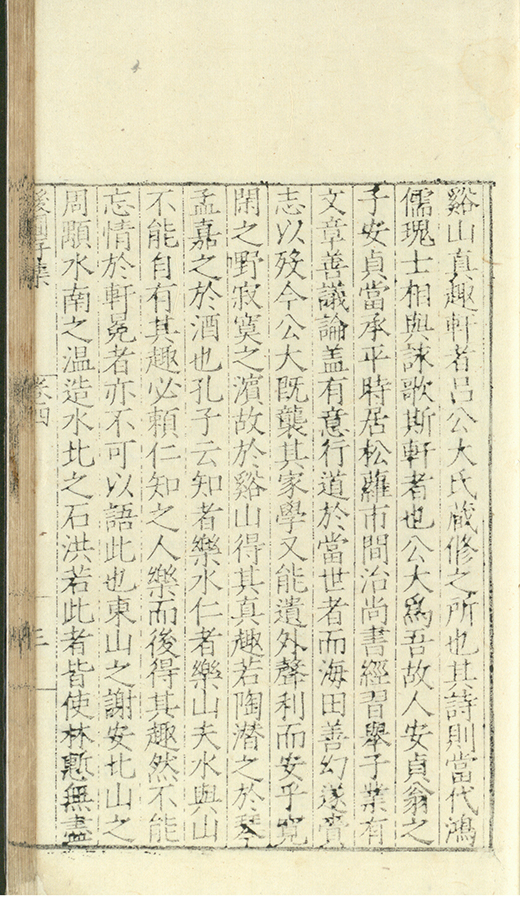 谿山真趣軒者呂公大氏蔵修之所也其詩則當代鴻
儒瑰士相與詠歌斯軒者也公大爲吾故人安貞翁之
子安貞當承平時居松蘿市間治尚書經習舉子業有
文章善議論盖有意行道於當世者而海田善幻遂賫
志以歿今公大既襲其家學又能遺外聲利而安乎寛
閑之野寂寞之濵故於谿山得其真趣若陶潜之於琴
孟嘉之於酒也孔子云知者樂水仁者樂山夫水與山
不能自有其趣必頼仁知之人樂而後得其趣然不能
忘情於軒冕者亦不可以語此也東山之謝安北山之
周顒水南之温造水北之石洪若此者皆使林慙無盡
後圃 集
卷四
三